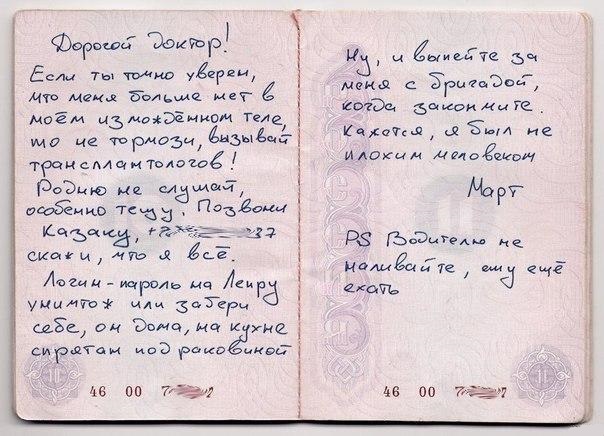 Дорогой доктор!
Если ты точно уверен,
что меня больше нет в
моём измождённом теле,
то не тормози, вызывай
трансплантологов!
Родню не слушай,
особенно тёщу. Позвони
Казаку, +7 37
скажи, что я всё.
Логин-пароль на Лепру
уничтож или забери
себе, он дома, на кухне
спрятан под раковиной
46 00 7
Ну, и выпейте за
меня с бригадой,
когда закончите.
Кажется, я был не
плохим человеком
Март
PS Водителю не
наливайте, ему ещё
ехать
46 00 7